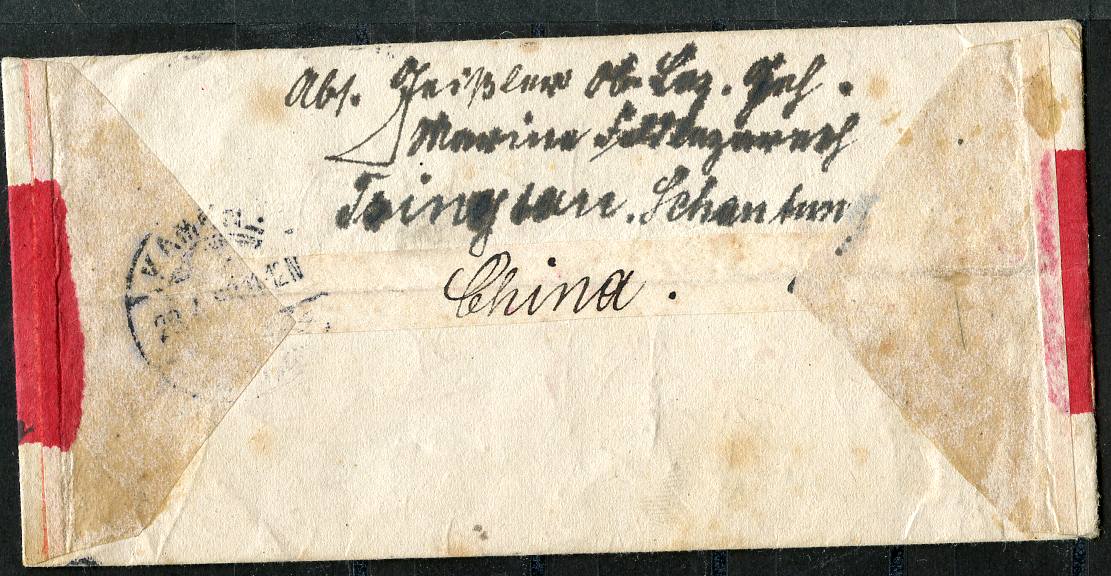 Abs. Geißler Ob. Laz. Geh.
Marine Feldlazareth
Tsingtau. Schantun
China.
KAMEN
12N